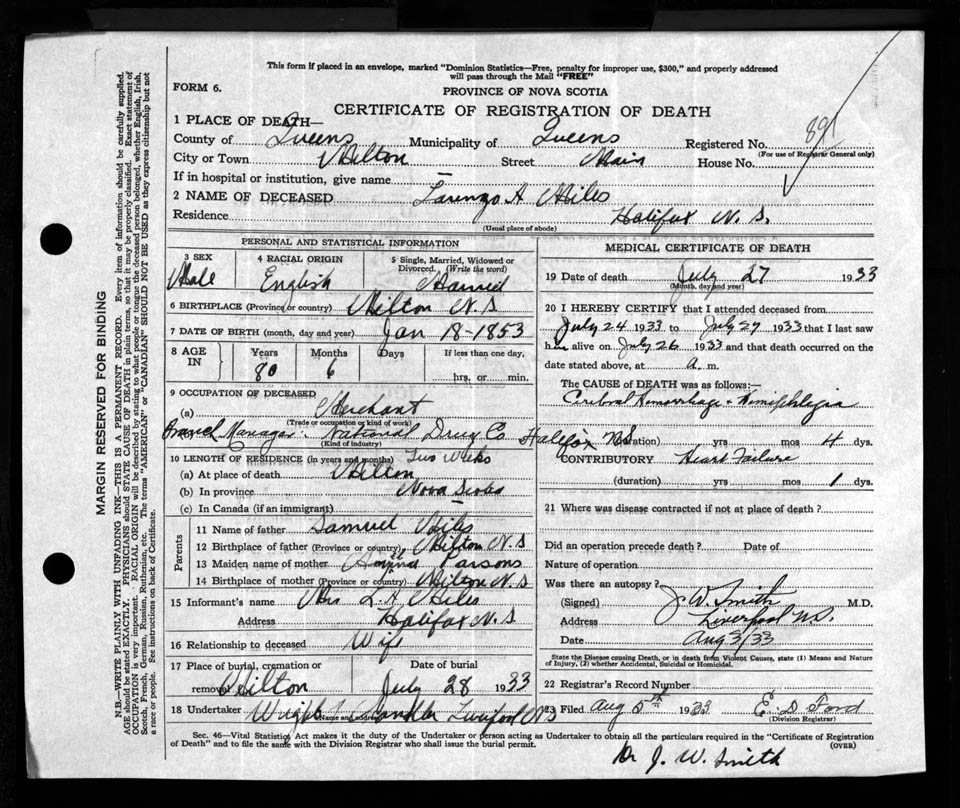 This form if placed in an envelope, marked "Dominion Statistics—Free, penalty for improper use, $300," and properly addressed
will pass through the Mail "FREE"
FORM 6.
PROVINCE OF NOVA SCOTIA
CERTIFICATE OF REGISTRATION OF DEATH
1 PLACE OF DEATH—
County of Queens Municipality of Queens Registered No. 891
(For use of Registrar General only)
City or Town Milton Street Main House No.
If in hospital or institution, give name —
2 NAME OF DECEASED Lorenzo A Miles
Residence Halifax N. S.
(Usual place of abode)
PERSONAL AND STATISTICAL INFORMATION
3 SEX 4 RACIAL ORIGIN 5 Single, Married, Widowed or
Divorced. (Write the word)
Male English Married
6 BIRTHPLACE (Province or country) Milton N.S
7 DATE OF BIRTH (month, day and year) Jan 18-1853
8 AGE IN Years Months Days If less than one day,
80 6 hrs. or min.
9 OCCUPATION OF DECEASED
(a) Merchant
(Trade or occupation or kind of work)
Branch Manager. National Drug Co Halifax NS
(Kind of industry)
10 LENGTH OF RESIDENCE (in years and months) Two Weeks
(a) At place of death Milton
(b) In province Nova Scotia
(c) In Canada (if an immigrant) —
Parents
11 Name of father Samuel Miles
12 Birthplace of father (Province or country) Milton N.S
13 Maiden name of mother Parsons
14 Birthplace of mother (Province or country) Milton N.S
15 Informant's name Mrs L.A Miles
Address Halifax N.S
16 Relationship to deceased Wife
17 Place of burial, cremation or Date of burial
removal Milton July 28 1933
18 Undertaker Wright Liverpool NS
(Name and address)
MEDICAL CERTIFICATE OF DEATH
19 Date of death July 27 1933
(Month, day and year)
20 I HEREBY CERTIFY that I attended deceased from
July 24 1933 to July 27 1933 that I last saw
him alive on July 26 1933 and that death occurred on the
date stated above, at a. m.
The CAUSE OF DEATH was as follows:
Cerebral Hemorrhage + Hemiphlegia
(duration) yrs mos 4 dys.
CONTRIBUTORY Heart Failure
(duration) yrs mos 1 dys.
21 Where was disease contracted if not at place of death?
Did an operation precede death? Date of
Nature of operation
Was there an autopsy?
(Signed) J. W. Smith M.D.
Address Liverpool N.S.
Date Aug 3/33
State the Disease causing Death, or in death from Violent Causes, state (1) Means and Nature
of Injury, (2) whether Accidental, Suicidal or Homicidal.
22 Registrar's Record Number
23 Filed Aug 5th 1933 E D Ford
(Division Registrar)
Sec. 46—Vital Statistics Act makes it the duty of the Undertaker or person acting as Undertaker to obtain all the particulars required in the "Certificate of Registration
of Death" and to file the same with the Division Registrar who shall issue the burial permit. (OVER)
Dr J. W. Smith
MARGIN RESERVED FOR BINDING
N.B.—WRITE PLAINLY WITH UNFADING INK—THIS IS A PERMANENT RECORD. Every item of information should be carefully supplied.
AGE should be stated EXACTLY. PHYSICIANS should STATE CAUSE OF DEATH in plain terms, so that it may be properly classified. Exact statement of
OCCUPATION is very important. RACIAL ORIGIN will be described by stating to what people or tongue the deceased person belonged, whether English, Irish,
Scotch, French, German, Russian, Ruthenian, etc. The terms "AMERICAN" or "CANADIAN" SHOULD NOT BE USED as they express citizenship but not
a race or people. See instructions on back of Certificate.